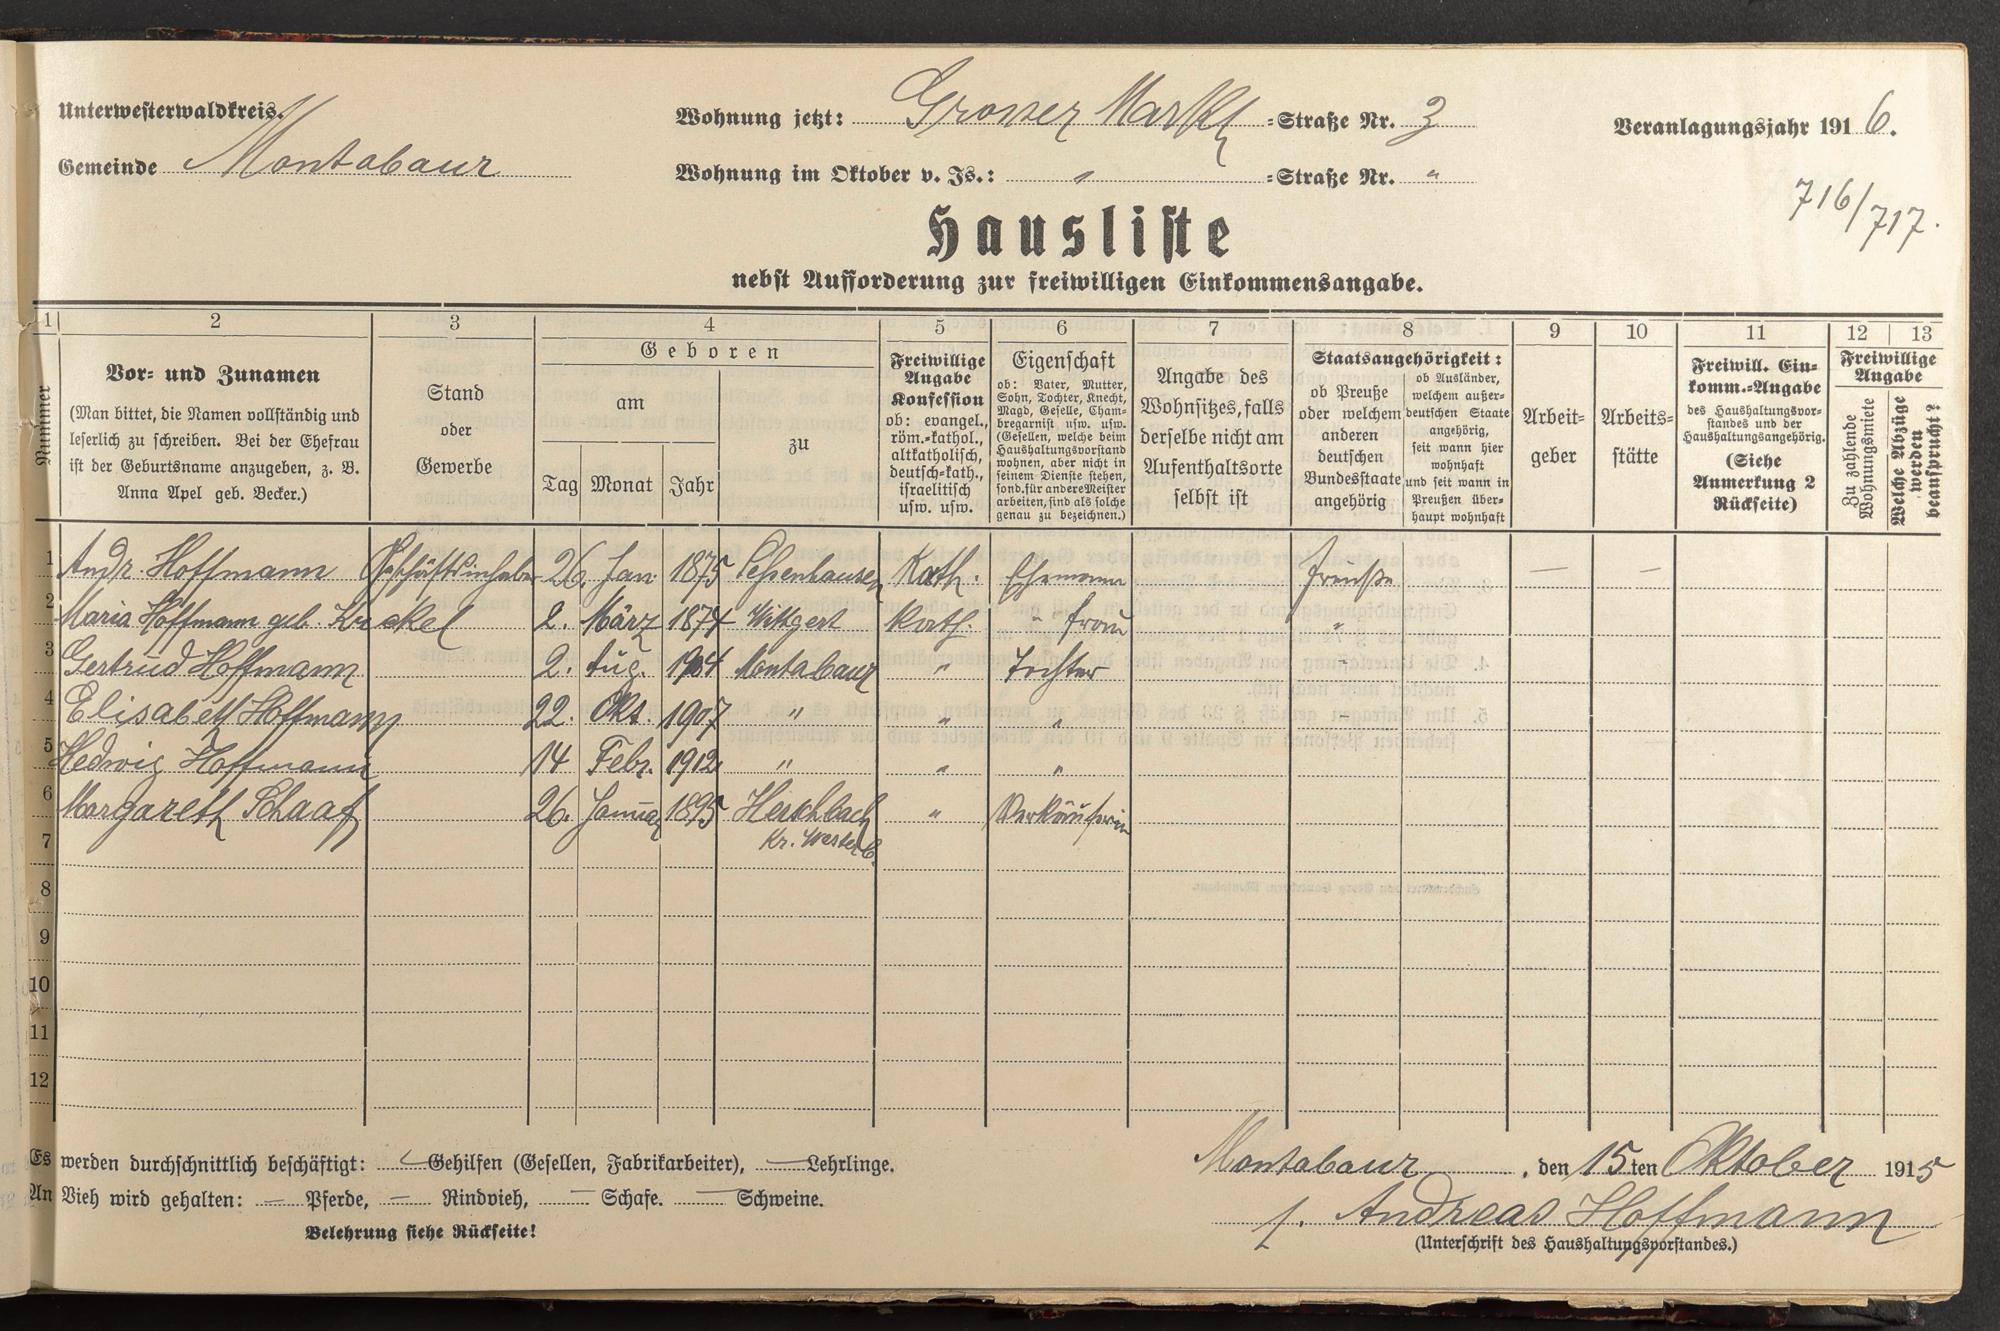 Unterwesterwaldkreis.
Gemeinde Montabaur
Wohnung jetzt: Grosser Markt =Straße Nr. 3
Wohnung im Oktober v. Js.: " =Straße Nr. "
Veranlagungsjahr 1916.
716/717.
Hausliste
nebst Aufforderung zur freiwilligen Einkommensangabe.
1 2 3 4 5 6 7 8 9 10 11 12 13
Nummer
Vor- und Zunamen
(Man bittet, die Namen vollständig und
leserlich zu schreiben. Bei der Ehefrau
ist der Geburtsname anzugeben, z. B.
Anna Apel geb. Becker.)
Stand
oder
Gewerbe
Geboren
am
Tag Monat Jahr
zu
Freiwillige
Angabe
Konfession
ob: evangel.,
röm.-kathol.,
altkatholisch,
deutsch-kath.,
israelitisch
usw. usw.
Eigenschaft
ob: Vater, Mutter,
Sohn, Tochter, Knecht,
Magd, Geselle, Cham-
bregarnist usw. usw.
(Gesellen, welche beim
Haushaltungsvorstand
wohnen, aber nicht in
seinem Dienste stehen,
sond. für andere Meister
arbeiten, sind als solche
genau zu bezeichnen.)
Angabe des
Wohnsitzes, falls
derselbe nicht am
Aufenthaltsorte
selbst ist
Staatsangehörigkeit:
ob Preuße
oder welchem
anderen
deutschen
Bundesstaate
angehörig
ob Ausländer,
welchem außer-
deutschen Staate
angehörig,
seit wann hier
wohnhaft
und seit wann in
Preußen über-
haupt wohnhaft
Arbeit-
geber
Arbeits-
stätte
Freiwill. Ein-
komm.-Angabe
des Haushaltungsvor-
standes und der
Haushaltungsangehörig.
(Siehe
Anmerkung 2
Rückseite)
Freiwillige
Angabe
Zu zahlende
Wohnungsmiete
Welche Abzüge
werden
beansprucht?
1 Andr. Hoffmann Geschäftsinhaber 26. Jan. 1875 Kath. Ehemann Preuße — —
2 Maria Hoffmann geb. 2. März 1874 Wittgert Kath. " frau "
3 Gertrud Hoffmann 2. Aug. 1904 Montabaur " Tochter
4 Elisabeth Hoffmann 22. Okt. 1907 " " "
5 Hedwig Hoffmann 14 Febr. 1912 " " "
6 Margareth Schaaf 26. Januar 1895 Herschbach " Verkäuferin
7 Kr. Westerb.
8
9
10
11
12
Es werden durchschnittlich beschäftigt: — Gehilfen (Gesellen, Fabrikarbeiter), — Lehrlinge.
An Vieh wird gehalten: — Pferde, — Rindvieh, — Schafe. — Schweine.
Belehrung siehe Rückseite!
Montabaur, den 15ten Oktober 1915
f. Andreas Hoffmann
(Unterschrift des Haushaltungsvorstandes.)